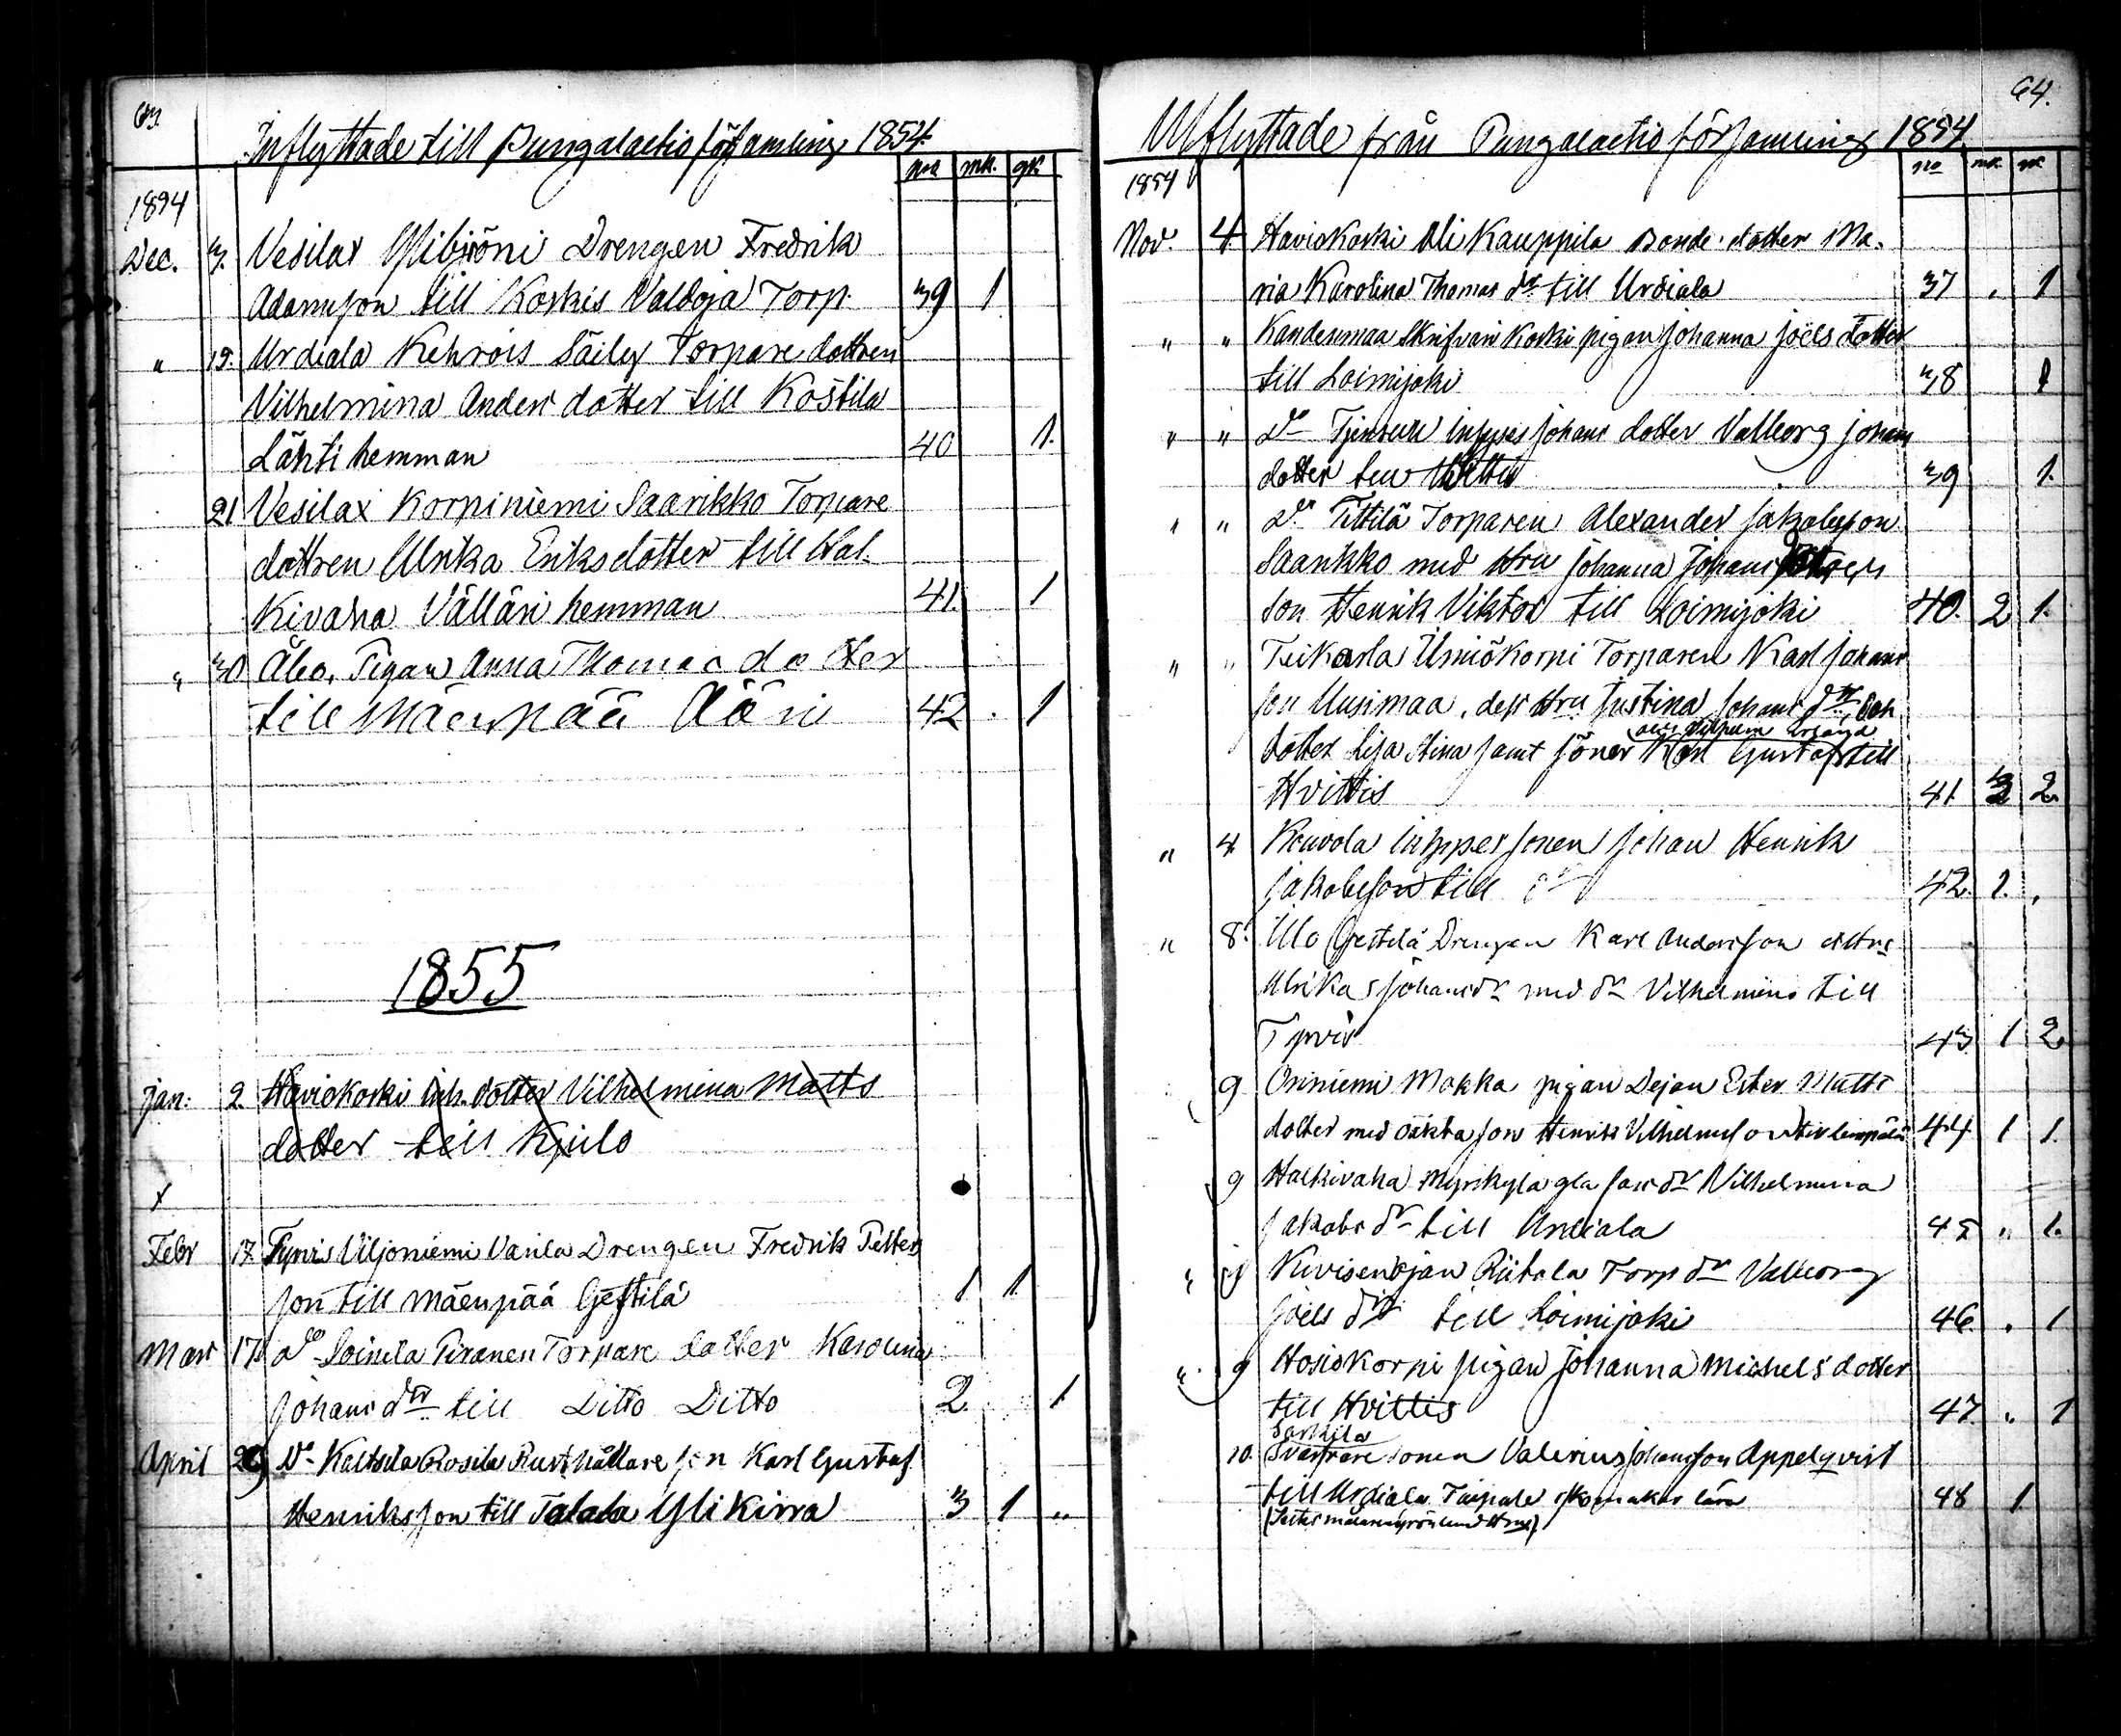 63.
Inflyttade till Pungalaitis församling 1854.
No mk. qk
1854
Dec. 3. Vesilax Ylibiröni Drengen Fredrik
Adamsson till Koskis Valdoja Torp. 39 1
" 19. Urdiala Kehrois Säiley Torpare dottren
Vilhelmina Anders dotter till Kostila
Lähti hemman 40 1.
21 Vesilax Korpiniemi Saarikko Torpare
dottren Ulrika Eriksdotter till Hal-
kivaha Välläri hemman 41 1
" 30 Åbo, Pigan Anna Thomas dotter
till Mäenpää 42 . 1
1855
Jan: 2. Haviokoski inh. dotter Vilhelmina Matts
dotter till Kjulo
x
Febr 17. Tyrvis Viljoniemi Varila Drengen Fredrik Petter
son till Mäenpää Gestilä 1 1.
Mart 17. Do Soinila Piranen Torpare dotter Karolina
Johans dtr till Ditto Ditto 2. 1
April 29 Do Kaltsila Rosila Rusthållare son Karl Gustaf
Henriksson till Talala Ylikirra 3 1 "
64.
Utflyttade från Pungalaitis församling 1854.
1854 No mk. qk.
Nov. 4 Haviokoski Ali Kauppila Bonde dotter Ma-
ria Karolina Thomas dr till Urdiala 37 . 1
" " Kandenmaa Skrifvari Koski pigan Johanna Joels dotter
till Loimijoki 38 1
" " Do inhyses Johans dotter Valborg Johans
dotter till Hvittis 39 1.
" " Do Tittilä Torparen Alexander Jakobsson
Saarikko med Hru Johanna Johans
son Henrik Viktor till Loimijoki 40. 2 1.
" " Teikarla Uusiökorpi Torparen Karl Johans
son Uusimaa, dess Hru Justina Johans dtr, och
dotter Lisa Stina samt söner Karl Gustaf till
Hvittis 41 3 2.
" 4 Kouvola inhyses sonen Johan Henrik
Jakobsson till do 42. 1. .
" 8. Ulo Gestilä Drengen Karl Andersson Hru
Ulrika Johansdr med dr Vilhelmina till
Tyrvis 43 1 2
9 Oriniemi Mokka pigan Dejan Ester Matts
dotter med oäkta son Henrik Vilhelmsson till Lempälä 44 1 1.
9 Halkivaha Myrskylä gla dr Vilhelmina
Jakobs dr till Urdiala 45 " 1.
" 9 Kivisenojan Riitala Torp dr Valborg
Joels dtr till Loimijoki 46. . 1
" 9 Hosiokorpi pigan Johanna Michels dotter
till Hvittis 47 " 1
Sarkila
10. Svarfvare sonen Valerius Johansson Appelqvist
till Urdiala Taipale skomakar lära 48 1